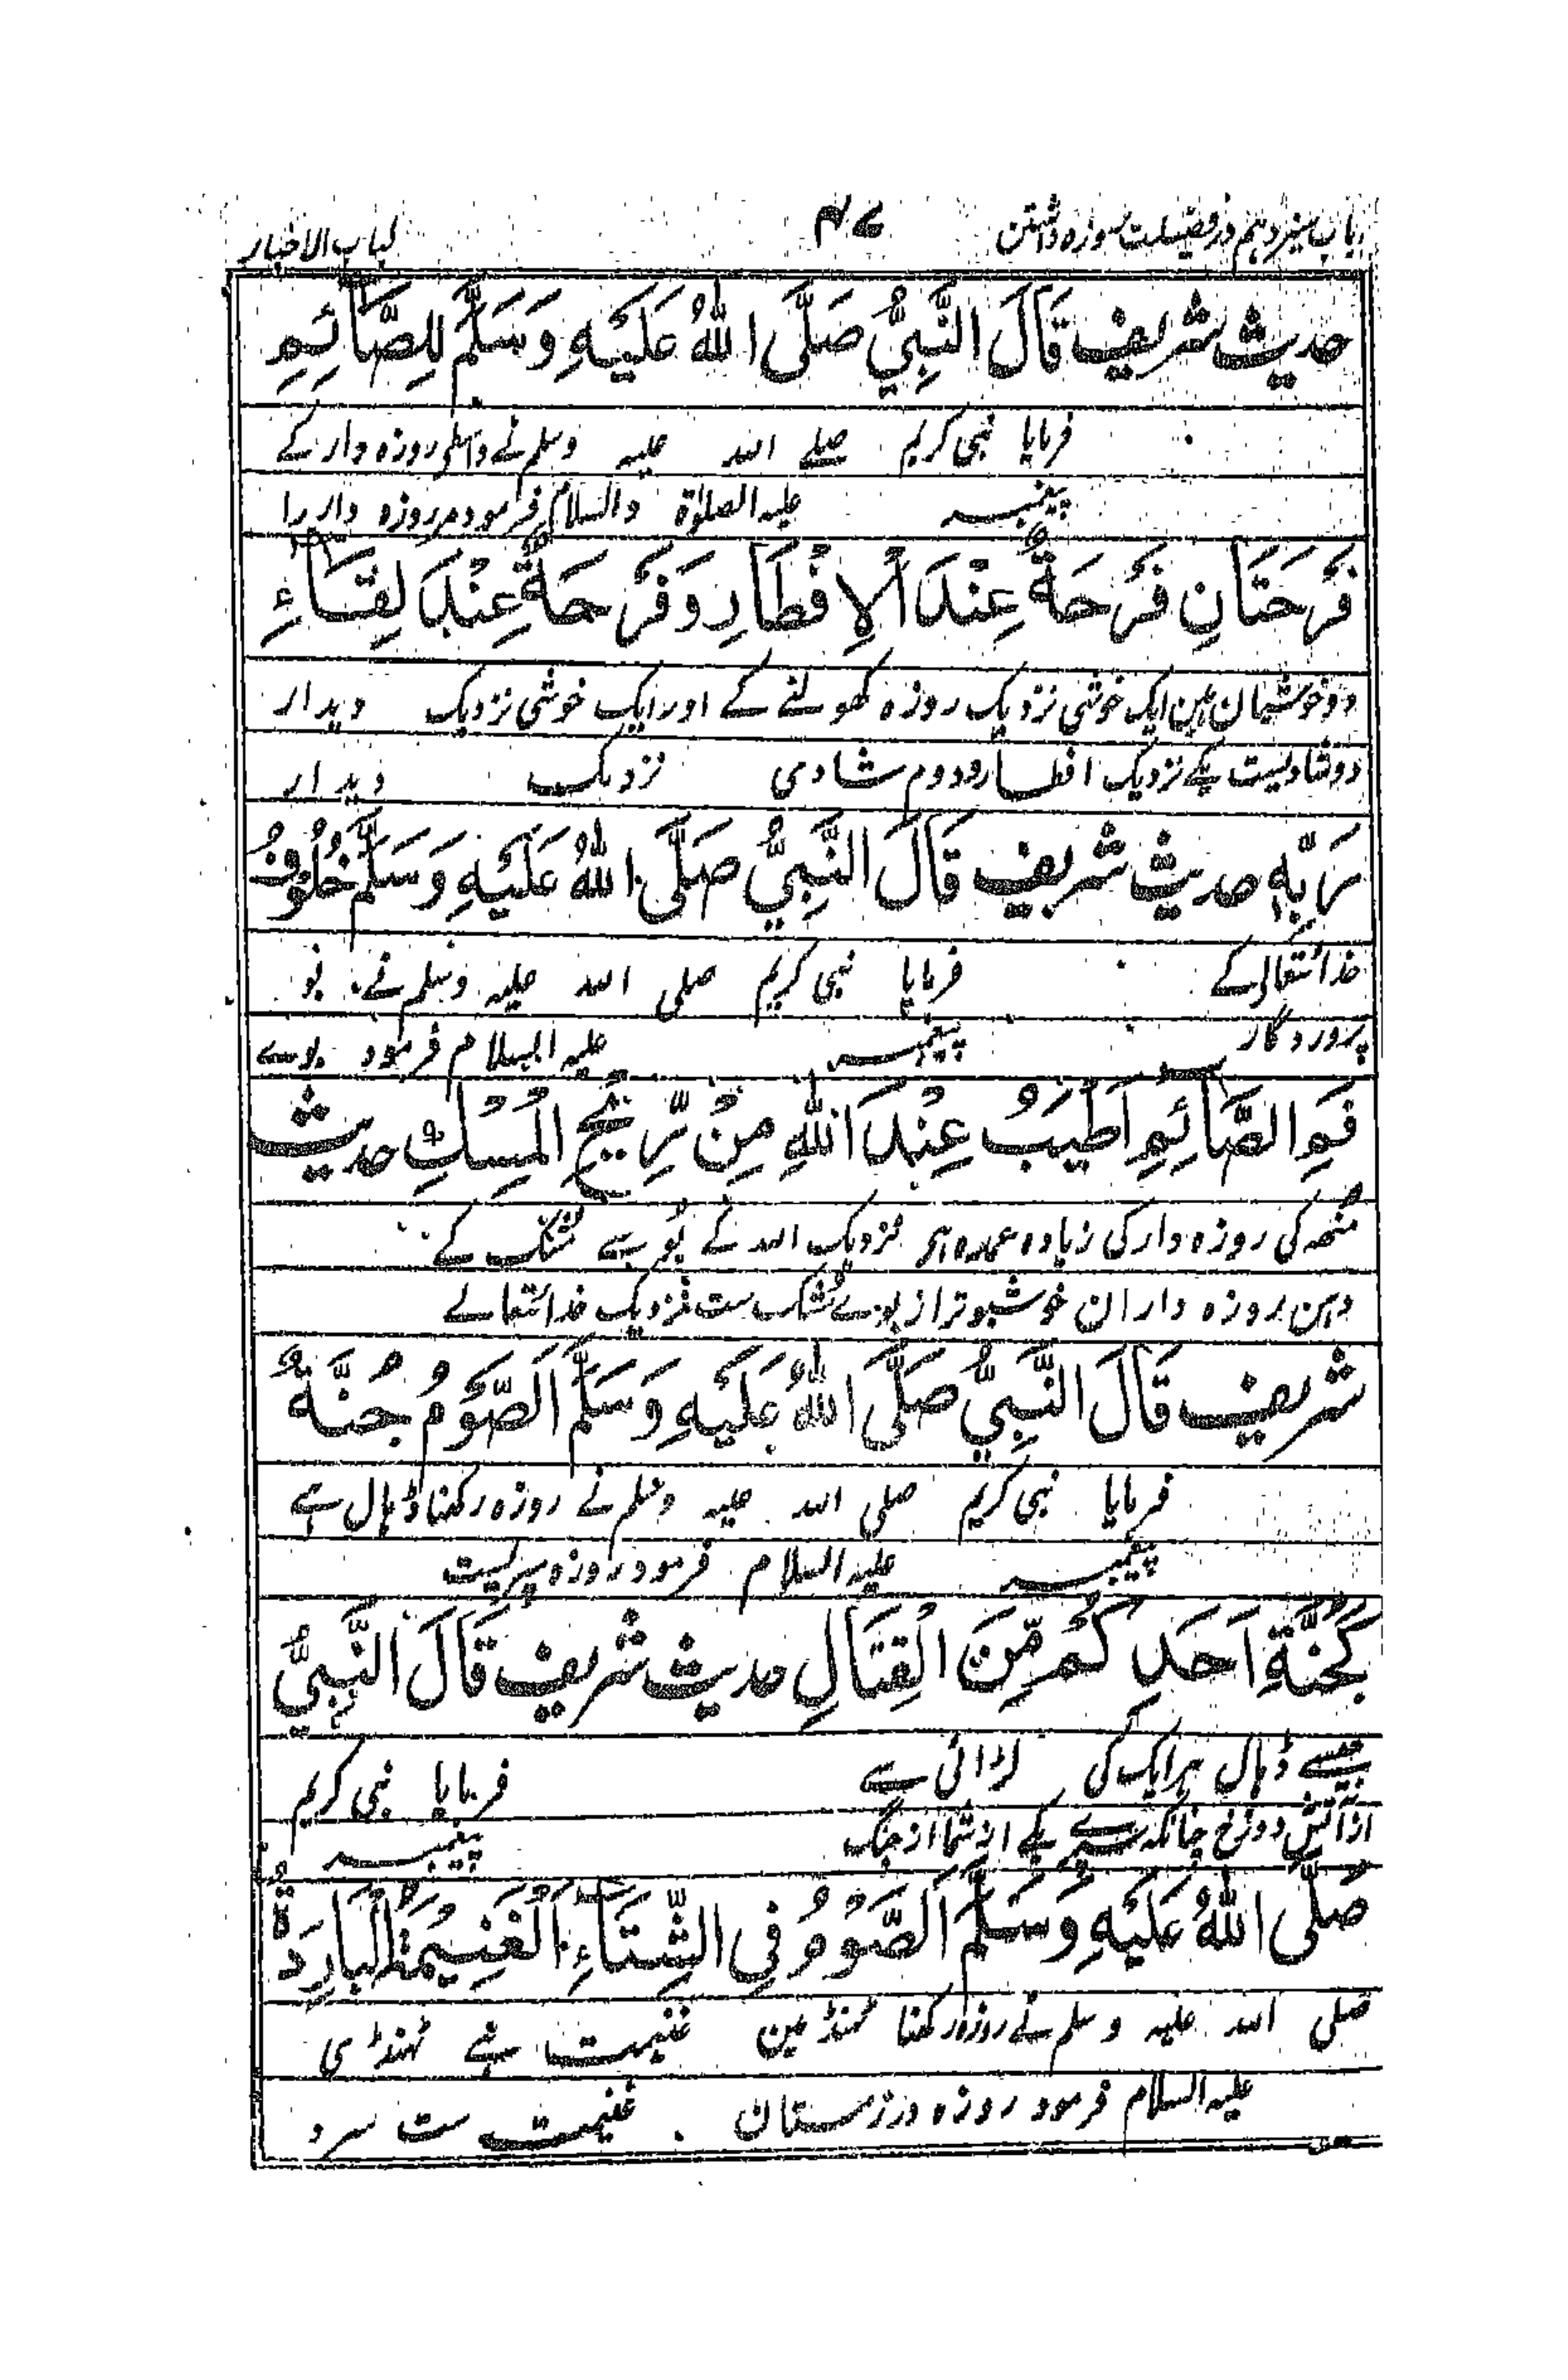 باب سیزدہم در فضیلت روزہ داشتن ۴۷ لباب الاخبار
حدیث شریف قَالَ النَّبِيُّ صَلَّى اللّٰهُ عَلَيْهِ وَسَلَّمَ لِلصَّائِمِ
فرمایا نبی کریم صلے اللہ علیہ وسلم نے واسطے روزہ دار کے
پیغمبر علیہ الصلوٰۃ والسلام فرمود مر روزہ دار را
فَرْحَتَانِ فَرْحَةٌ عِنْدَ الْاِفْطَارِ وَفَرْحَةٌ عِنْدَ لِقَاءِ
دو خوشیان ہین ایک خوشی نزدیک روزہ کھولنے کے اور ایک خوشی نزدیک دیدار
دو شادیست یکے نزدیک افطار و دوم شادی نزدیک دیدار
رَبِّهٖ حدیث شریف قَالَ النَّبِيُّ صَلَّى اللّٰهُ عَلَيْهِ وَسَلَّمَ خُلُوْفُ
خدائتعالی کے فرمایا نبی کریم صلی اللہ علیہ وسلم نے بو
پروردگار پیغمبر علیہ السلام فرمود بوے
فَمِ الصَّائِمِ اَطْيَبُ عِنْدَ اللّٰهِ مِنْ رِّيْحِ الْمِسْكِ حدیث
مُنھ کی روزہ دار کی زیادہ عمدہ ہی نزدیک اللہ کے بُو سے مُشک کے
دہن روزہ داران خوشبو تر از بوے مُشک ست نزدیک خدائتعالے
شریف قَالَ النَّبِيُّ صَلَّى اللّٰهُ عَلَيْهِ وَسَلَّمَ اَلصَّوْمُ جُنَّةٌ
فرمایا نبی کریم صلی اللہ علیہ وسلم نے روزہ رکھنا ڈہال ہے
پیغمبر علیہ السلام فرمود روزہ سپریست
كَجُنَّةِ اَحَدِكُمْ مِّنَ الْقِتَالِ حدیث شریف قَالَ النَّبِيُّ
جیسے ڈہال ہر ایک کی لڑائی سے فرمایا نبی کریم
از آتش دوزخ چنانکہ سپر یکے از شما از جنگ پیغمبر
صَلَّى اللّٰهُ عَلَيْهِ وَسَلَّمَ اَلصَّوْمُ فِى الشِّتَاءِ الْغَنِيْمَةُ الْبَارِدَةُ
صلی اللہ علیہ وسلم نے روزہ رکھنا ٹھنڈ مین غنیمت ہے ٹھنڈی
علیہ السلام فرمود روزہ در زمستان غنیمت ست سرد